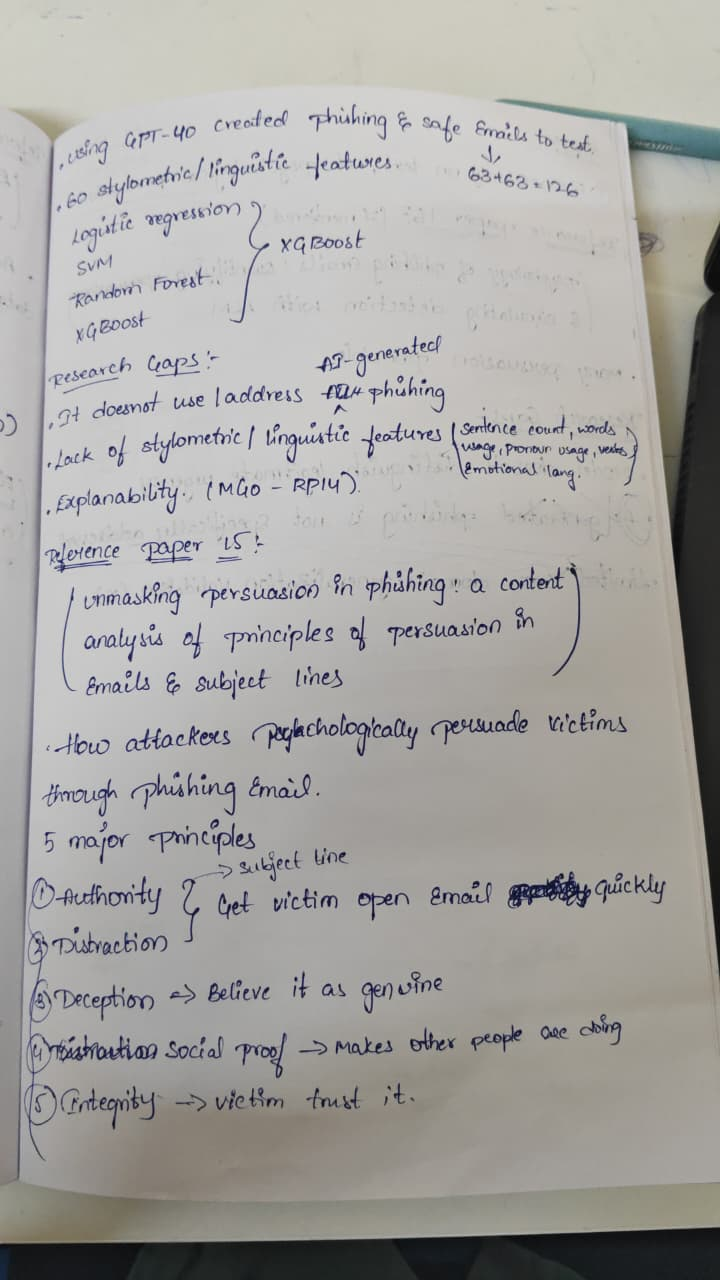 . Using GPT-4o created phishing & safe Emails to test.
↓
63+63=126
. 60 stylometric/linguistic features.
Logistic regression
SVM
Random Forest.
XGBoost
XGBoost
Research Gaps :-
AI-generated
. It doesnot use/address phishing
. Lack of stylometric/linguistic features (sentence count, words
usage, pronoun usage, verbs
Emotional lang.)
. Explanability. (MGO - RP14).
Reference paper 15 :-
(unmasking persuasion in phishing: a content
analysis of principles of persuasion in
Emails & subject lines)
. How attackers psychologically persuade victims
through phishing Email.
5 major principles
→ subject line
① Authority } Get victim open Email quickly
② Distraction
③ Deception => Believe it as genuine
④ social proof → Makes other people are doing
⑤ Integrity → victim trust it.